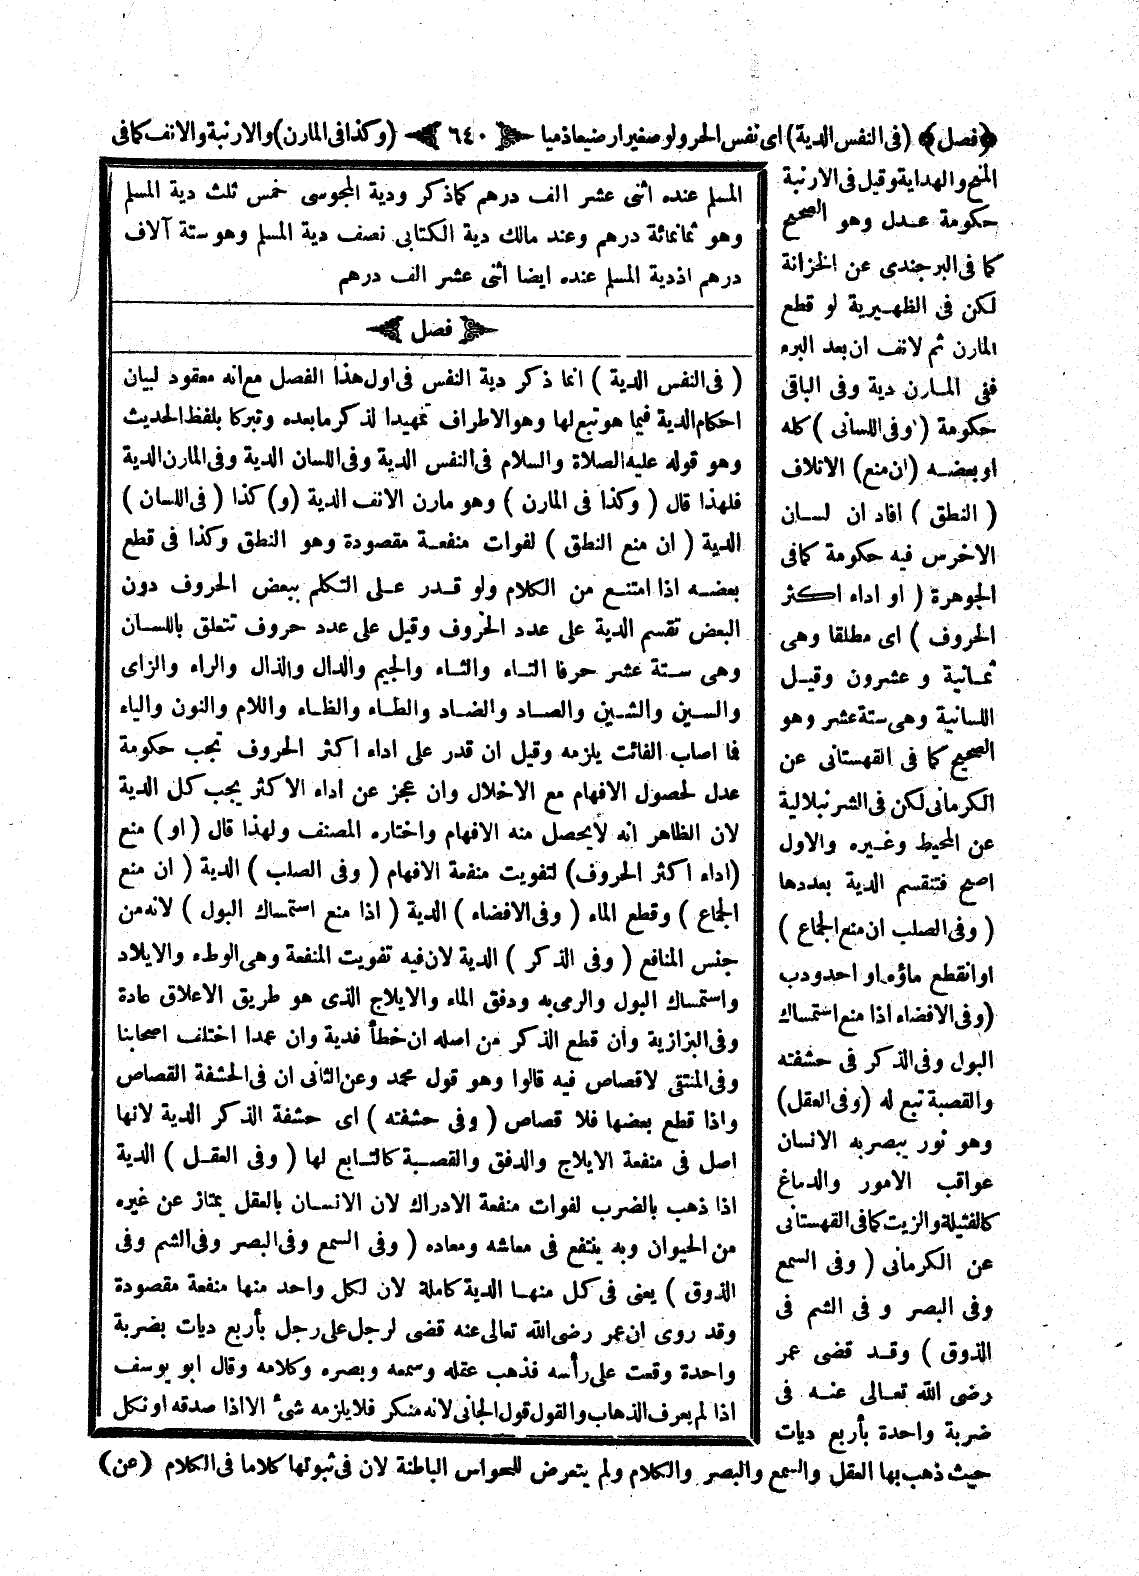 ﴿فصل﴾ (فى النفس الدية) اى نفس الحر ولو صغيرا رضيعا ذميا ﴿ ٦٤٠ ﴾ (وكذا فى المارن) والارنبة والانف كما فى
المنح والهداية وقيل فى الارنبة
حكومة عدل وهو الصحيح
كما فى البرجندى عن الخزانة
لكن فى الظهيرية لو قطع
المارن ثم لانف ان بعد البرء
ففى المارن دية وفى الباقى
حكومة ( وفى اللسانى ) كله
او بعضه (ان منع) الاتلاف
( النطق ) افاد ان لسان
الاخرس فيه حكومة كمافى
الجوهرة ( او اداء اكثر
الحروف ) اى مطلقا وهى
ثمانية و عشرون وقيل
اللسانية وهى ستة عشر وهو
الصحيح كما فى القهستانى عن
الكرمانى لكن فى الشرنبلالية
عن المحيط وغيره والاول
اصح فتنقسم الدية بعددها
( وفى الصلب ان منع الجماع )
او انقطع ماؤه او احدودب
(وفى الافضاء اذا منع استمساك
البول وفى الذكر فى حشفته
والقصبة تبع له (وفى العقل)
وهو نور يبصر به الانسان
عواقب الامور والدماغ
كالفتيلة والزيت كمافى القهستانى
عن الكرمانى ( وفى السمع
وفى البصر و فى الشم فى
الذوق ) وقد قضى عمر
رضى الله تعالى عنه فى
ضربة واحدة بأربع ديات
حيث ذهب بها العقل والسمع والبصر والكلام ولم يتعرض للحواس الباطنة لان فى ثبوتها كلاما فى الكلام (عن)
المسلم عنده اثنى عشر الف درهم كما ذكر ودية المجوسى خمس ثلث دية المسلم
وهو ثمانمائة درهم وعند مالك دية الكتابى نصف دية المسلم وهو ستة آلاف
درهم اذ دية المسلم عنده ايضا اثنى عشر الف درهم
﴿ فصل ﴾
( فى النفس الدية ) انما ذكر دية النفس فى اول هذا الفصل مع انه معقود لبيان
احكام الدية فيما هو تبع لها وهو الاطراف تمهيدا لذكر ما بعده وتبركا بلفظ الحديث
وهو قوله عليه الصلاة والسلام فى النفس الدية وفى اللسان الدية وفى المارن الدية
فلهذا قال ( وكذا فى المارن ) وهو مارن الانف الدية (و) كذا ( فى اللسان )
الدية ( ان منع النطق ) لفوات منفعة مقصودة وهو النطق وكذا فى قطع
بعضه اذا امتنع من الكلام ولو قدر على التكلم ببعض الحروف دون
البعض تقسم الدية على عدد الحروف وقيل على عدد حروف تتعلق باللسان
وهى ستة عشر حرفا التاء والثاء والجيم والدال والذال والراء والزاى
والسين والشين والصاد والضاد والطاء والظاء واللام والنون والياء
فما اصاب الفائت يلزمه وقيل ان قدر على اداء اكثر الحروف تجب حكومة
عدل لحصول الافهام مع الاخلال وان عجز عن اداء الاكثر يجب كل الدية
لان الظاهر انه لايحصل منه الافهام واختاره المصنف ولهذا قال ( او ) منع
(اداء اكثر الحروف) لتفويت منفعة الافهام ( وفى الصلب ) الدية ( ان منع
الجماع ) وقطع الماء ( وفى الافضاء ) الدية ( اذا منع استمساك البول ) لانه من
جنس المنافع ( وفى الذكر ) الدية لان فيه تفويت المنفعة وهى الوطء والايلاد
واستمساك البول والرمى به ودفق الماء والايلاج الذى هو طريق الاعلاق عادة
وفى البزازية وان قطع الذكر من اصله ان خطأ فدية وان عمدا اختلف اصحابنا
وفى المنتقى لاقصاص فيه قالوا وهو قول محمد وعن الثانى ان فى الحشفة القصاص
واذا قطع بعضها فلا قصاص ( وفى حشفته ) اى حشفة الذكر الدية لانها
اصل فى منفعة الايلاج والدفق والقصبة كالتابع لها ( وفى العقل ) الدية
اذا ذهب بالضرب لفوات منفعة الادراك لان الانسان بالعقل يمتاز عن غيره
من الحيوان وبه ينتفع فى معاشه ومعاده ( وفى السمع وفى البصر وفى الشم وفى
الذوق ) يعنى فى كل منها الدية كاملة لان لكل واحد منها منفعة مقصودة
وقد روى ان عمر رضى الله تعالى عنه قضى لرجل على رجل بأربع ديات بضربة
واحدة وقعت على رأسه فذهب عقله وسمعه وبصره وكلامه وقال ابو يوسف
اذا لم يعرف الذهاب والقول قول الجانى لانه منكر فلا يلزمه شئ الا اذا صدقه او نكل